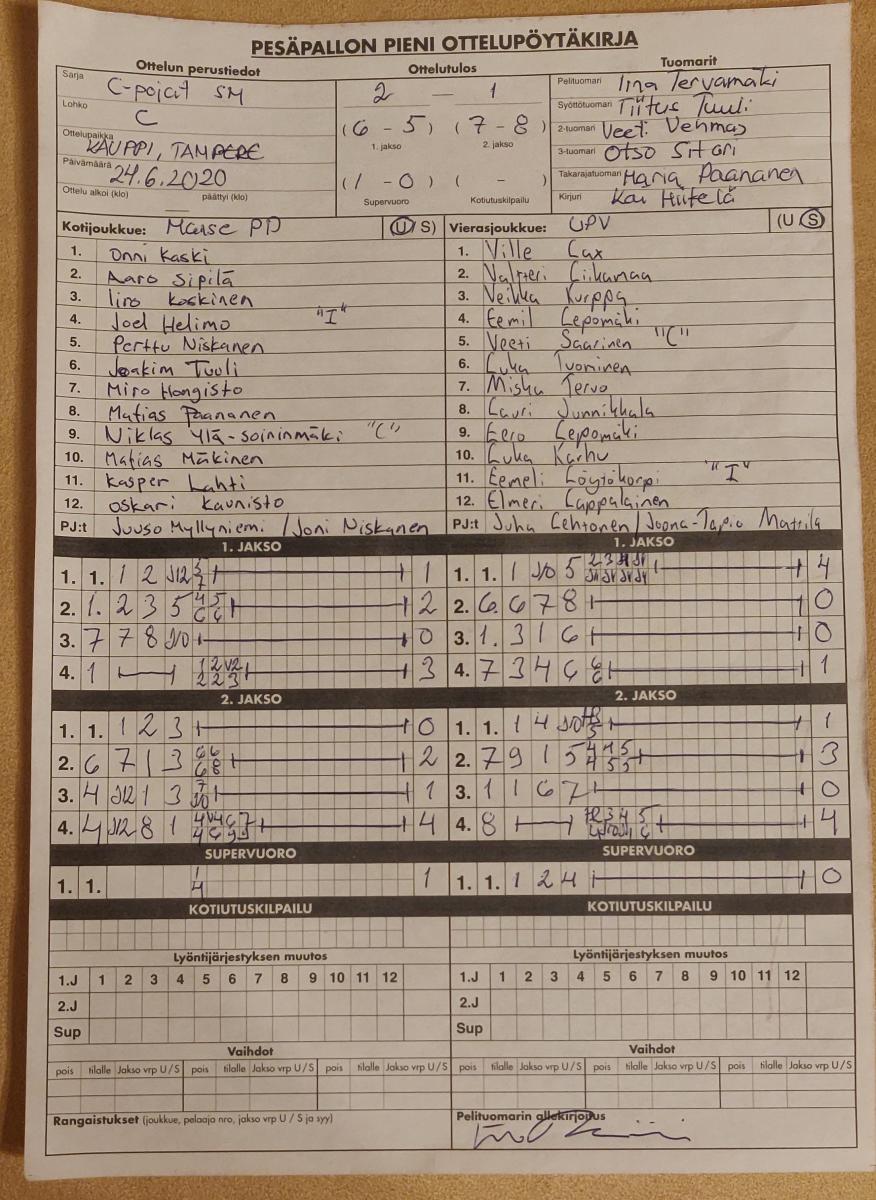 PESÄPALLON PIENI OTTELUPÖYTÄKIRJA
Ottelun perustiedot
Sarja C-pojat SM
Lohko C
Ottelupaikka KAUPPI, TAMPERE
Päivämäärä 24.6.2020
Ottelu alkoi (klo) päättyi (klo)
Ottelutulos
2 — 1
(6 - 5) (7 - 8)
1. jakso 2. jakso
(1 - 0) ( - )
Supervuoro Kotiutuskilpailu
Tuomarit
Pelituomari Iina Tervamäki
Syöttötuomari Tiitus Tuuli
2-tuomari Veeti Vehmas
3-tuomari Otso Sitari
Takarajatuomari Maria Paananen
Kirjuri Kai Hiitelä
Kotijoukkue: Manse PP (U/S)
1. Onni Kaski
2. Aaro Sipilä
3. Iiro Koskinen
4. Joel Helimo "I"
5. Perttu Niskanen
6. Joakim Tuuli
7. Miro Hongisto
8. Matias Paananen
9. Niklas Ylä-soininmäki "C"
10. Matias Mäkinen
11. Kasper Lahti
12. Oskari Kaunisto
PJ:t Juuso Myllyniemi / Joni Niskanen
Vierasjoukkue: UPV (U S)
1. Ville Lax
2. Valtteri Liikamaa
3. Veikka Kurppa
4. Eemil Lepomäki
5. Veeti Saarinen "C"
6. Luka Tuominen
7. Miska Tervo
8. Lauri Junnikkala
9. Eero Lepomäki
10. Luka Karhu
11. Eemeli Löytökorpi "I"
12. Elmeri Lappalainen
PJ:t Juha Lehtonen / Joona-Tapio Mattila
1. JAKSO
1. 1. 1 2 1
2. 1. 2 3 5 2
3. 7 7 8 0
4. 1 3
1. JAKSO
1. 1. 1 5 4
2. 6. 6 7 8 0
3. 1. 3 1 6 0
4. 7 3 4 6 1
2. JAKSO
1. 1. 1 2 3 0
2. 6 7 1 3 2
3. 4 J12 1 3 1
4. 4 J12 8 1 4
2. JAKSO
1. 1. 1 4 1
2. 7 9 1 5 3
3. 1 1 6 7 0
4. 8 4
SUPERVUORO
1. 1. 1 4 1
SUPERVUORO
1. 1. 1 2 4 0
KOTIUTUSKILPAILU
KOTIUTUSKILPAILU
Lyöntijärjestyksen muutos
1.J 1 2 3 4 5 6 7 8 9 10 11 12
2.J
Sup
Lyöntijärjestyksen muutos
1.J 1 2 3 4 5 6 7 8 9 10 11 12
2.J
Sup
Vaihdot
pois tilalle Jakso vrp U/S pois tilalle Jakso vrp U/S pois tilalle Jakso vrp U/S
Vaihdot
pois tilalle Jakso vrp U/S pois tilalle Jakso vrp U/S pois tilalle Jakso vrp U/S
Rangaistukset (joukkue, pelaaja nro, jakso vrp U / S ja syy)
Pelituomarin allekirjoitus